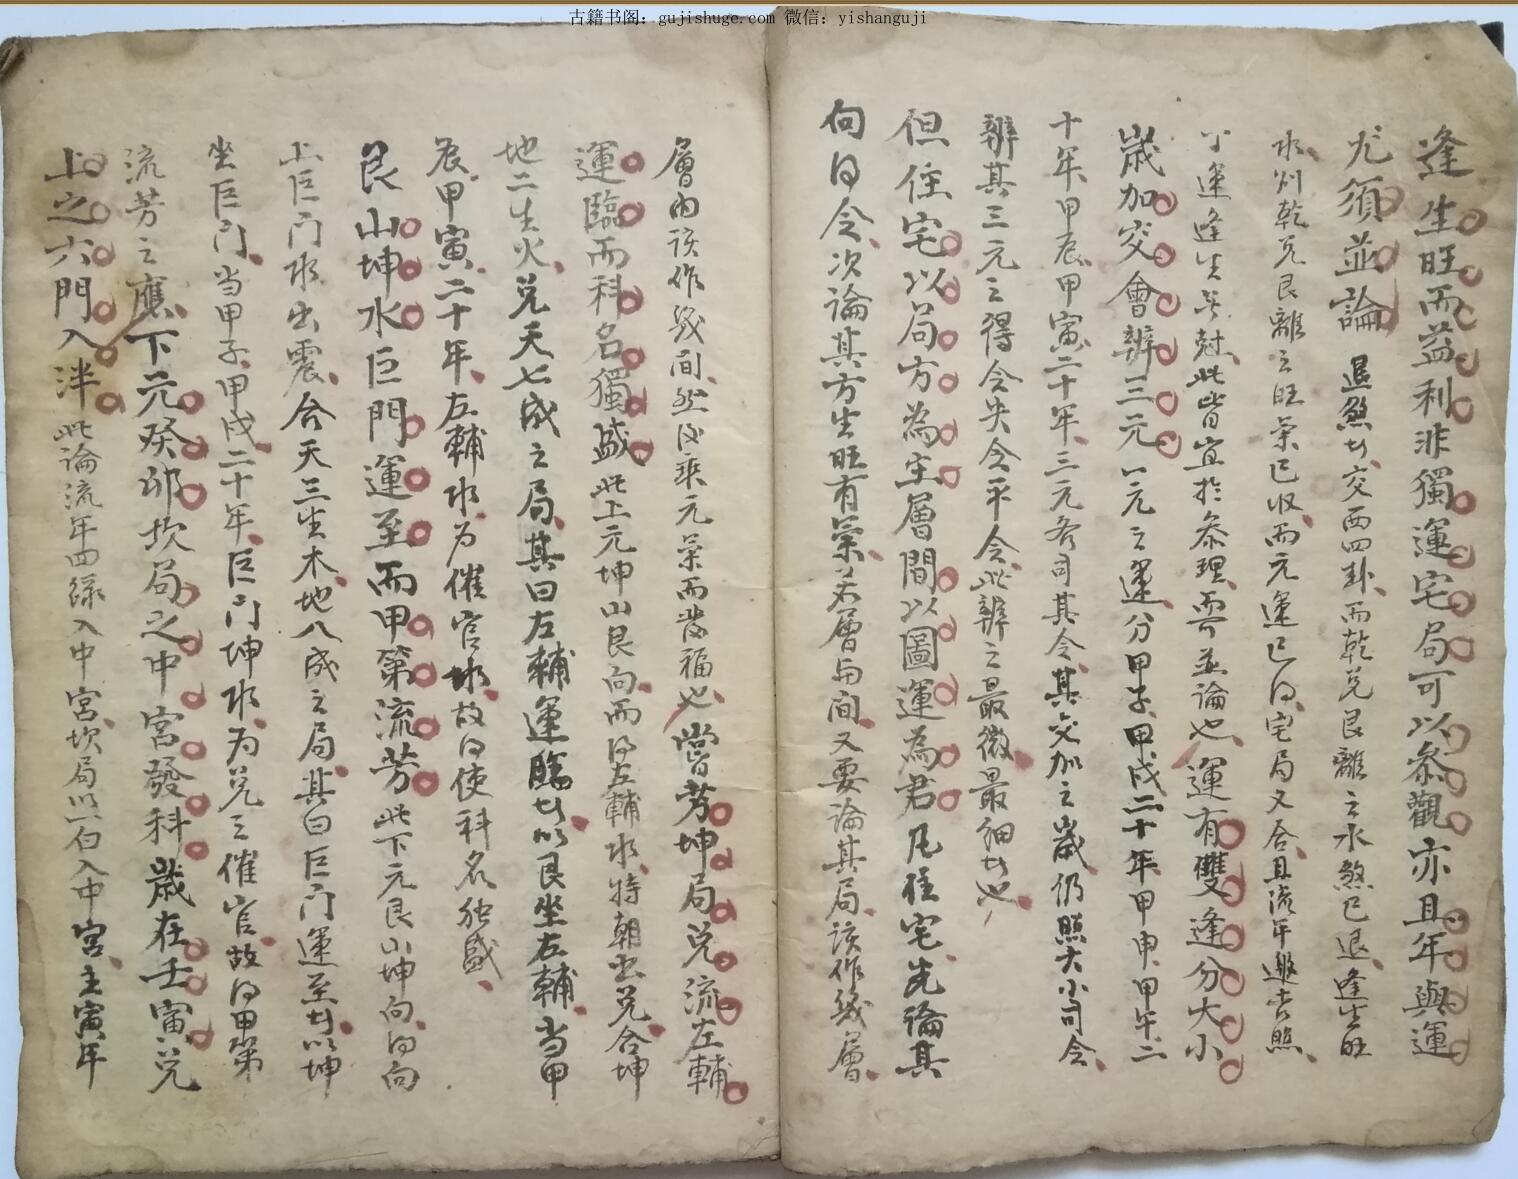 古籍书阁：gujishuge.com 微信：yishanguji
逢生旺而益利非獨運宅局可以參觀亦且年與運
尤須並論退煞者交西四卦而乾兌艮離之水煞已退逢生旺
水則乾兌艮離之旺氣已收而元運已得宅局又合且流年邀吉照
小運逢生無尅此皆宜於參理需並論也運有雙逢分大小
歲加交會辨三元一元之運分甲子甲戌二十年甲申甲午二
十年甲辰甲寅二十年三元各司其令其交加之歲仍照大小司令
辨其三元之得令失令平令此辨之最微最細者也
但住宅以局方為主層間以圖運為君凡住宅先論其
向得令次論其方生旺有氣若層與間又要論其局該作幾層
層內該作幾間然後乘元氣而發福也嘗考坤局兌流左輔
運臨而科名獨盛此上元坤山艮向而得左輔水特朝出兌合坤
地二生火兌天七成之局其曰左輔運臨者以艮坐左輔当甲
辰甲寅二十年左輔水为催官水故得使科名独盛
艮山坤水巨門運至而甲第流芳此下元艮山坤向得向
上巨门水出震合天三生木地八成之局其曰巨门運至者以坤
坐巨门当甲子甲戌二十年巨门坤水为兌之催官故得甲第
流芳之應下元癸卯坎局之中宮發科歲在壬寅兌
上之六門入泮此論流年四綠入中宮坎局以一白入中宮主寅年